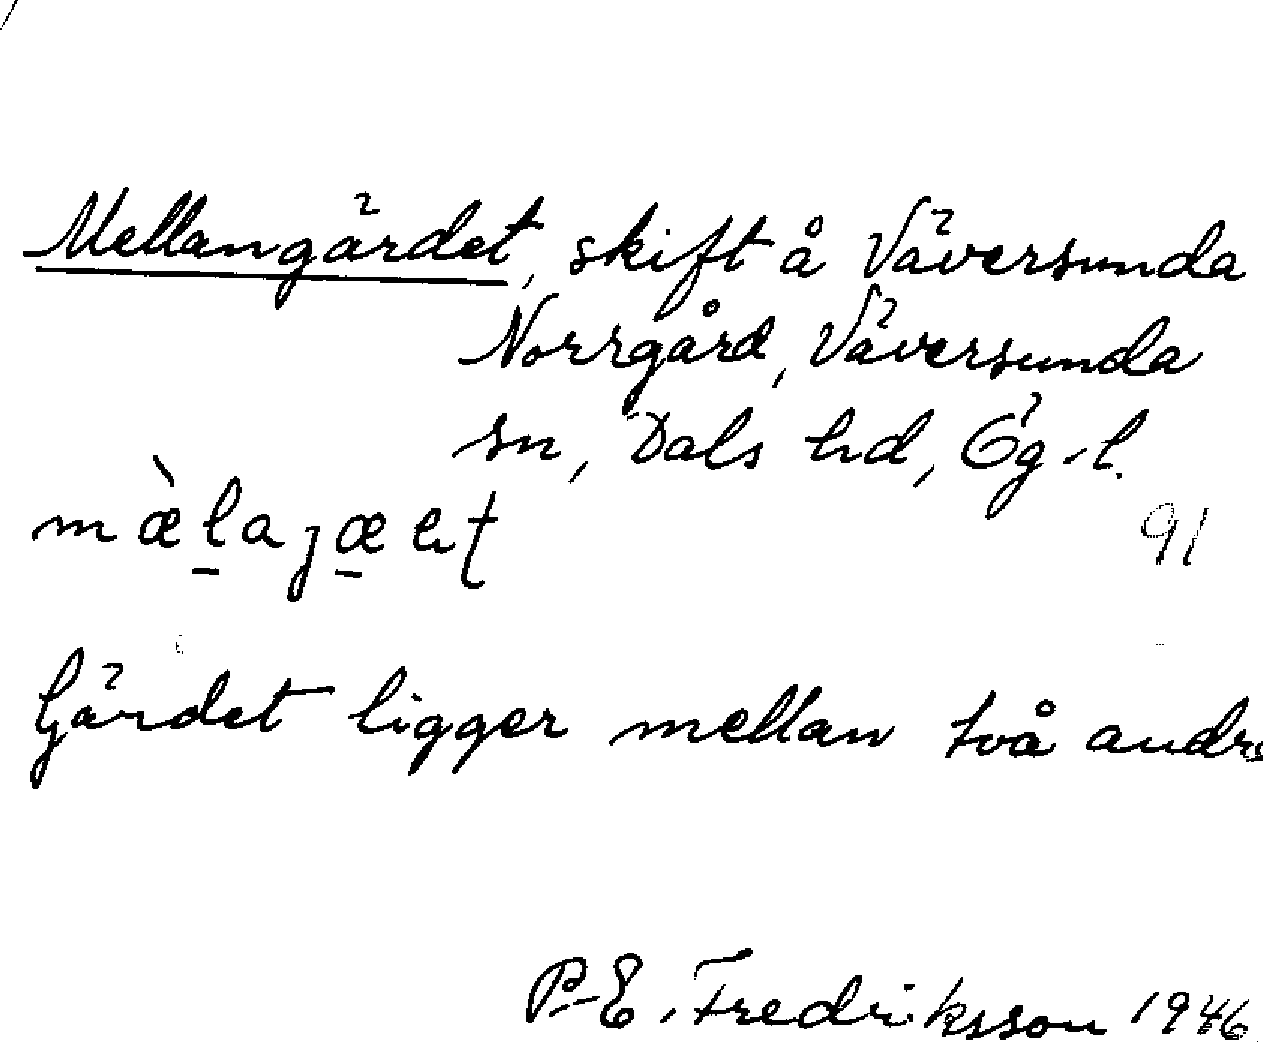 Mellangärdet, skift å Väversunda
Norrgård, Väversunda
sn, Dals hd, Ög-l.
91
Gärdet ligger mellan två andra
P-E. Fredriksson 1946